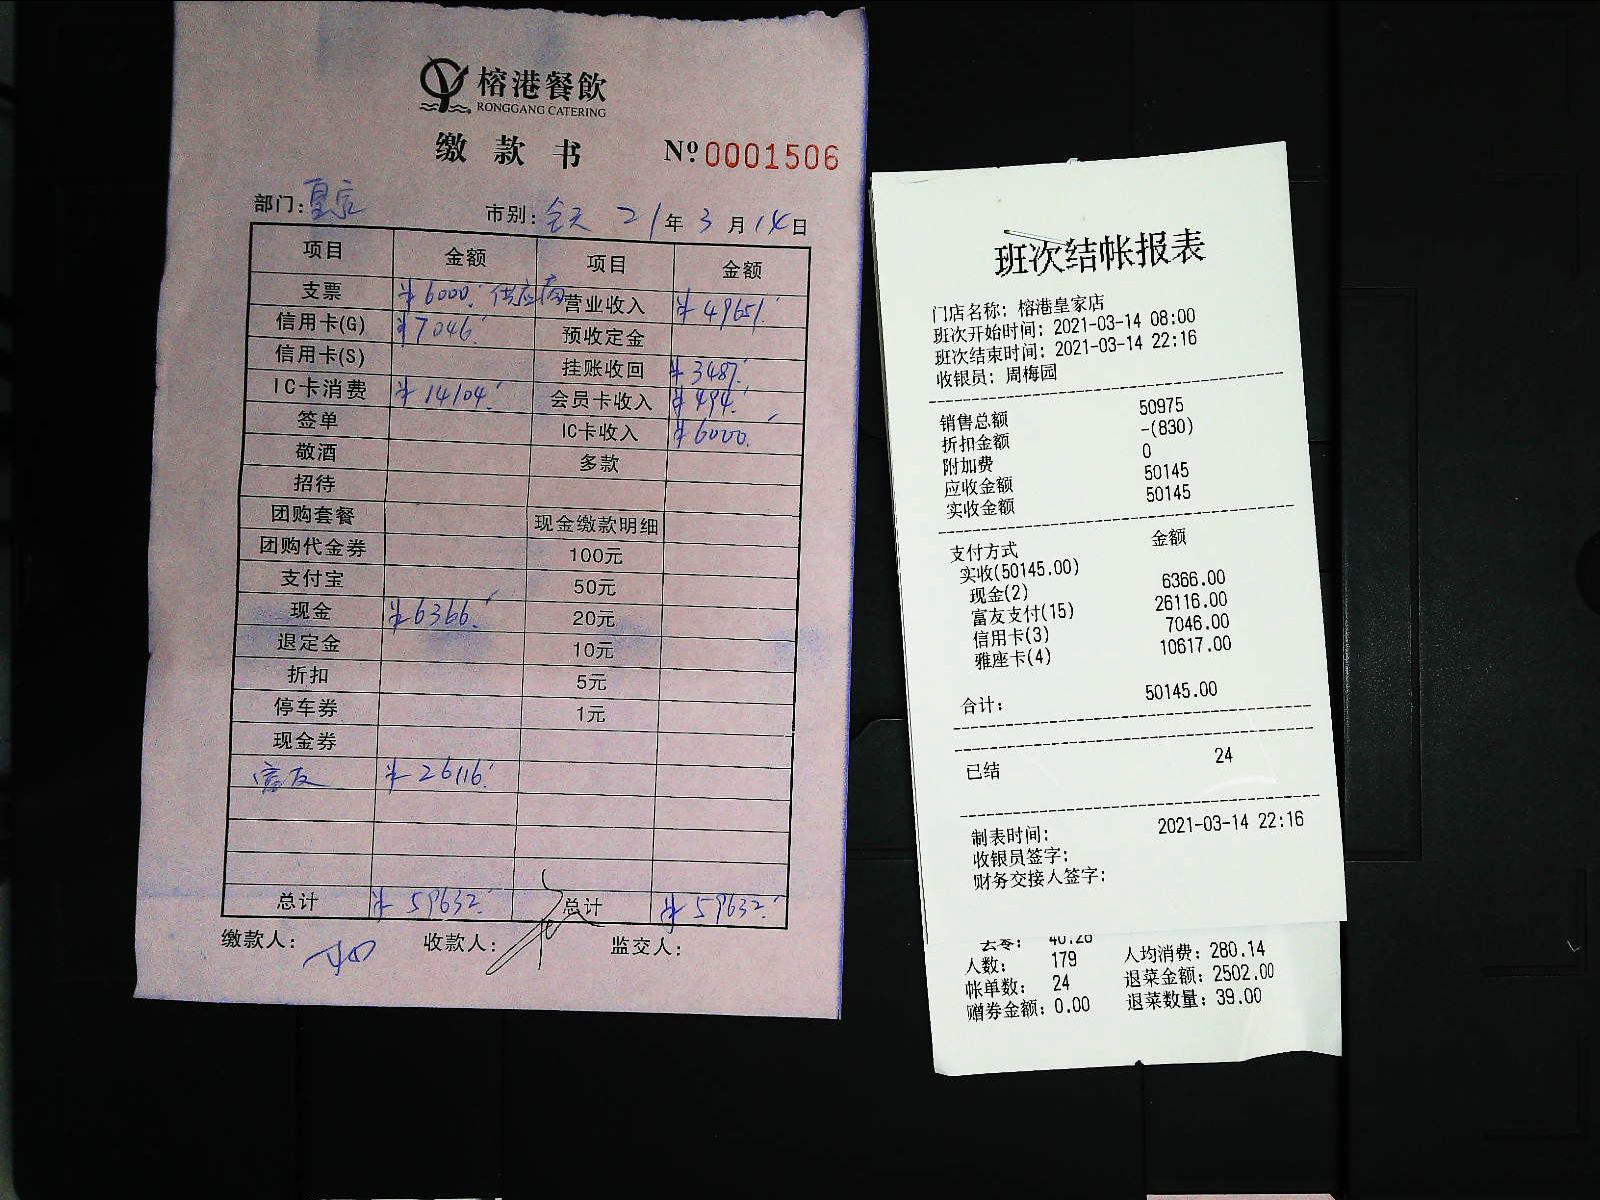 榕港餐飲
RONGGANG CATERING
缴款书 №0001506
部门: 皇家 市别: 全天 21年3月14日
项目 金额 项目 金额
支票 ¥6000. 供应商 营业收入 ¥49651.
信用卡(G) ¥7046. 预收定金
信用卡(S) 挂账收回 ¥3487.
IC卡消费 ¥14104. 会员卡收入 ¥494.
签单 IC卡收入 ¥6000.
敬酒 多款
招待
团购套餐 现金缴款明细
团购代金券 100元
支付宝 50元
现金 ¥6366. 20元
退定金 10元
折扣 5元
停车券 1元
现金券
富友 ¥26116.
总计 ¥59632. 总计 ¥59632.
缴款人: 收款人: 监交人:
班次结帐报表
门店名称: 榕港皇家店
班次开始时间: 2021-03-14 08:00
班次结束时间: 2021-03-14 22:16
收银员: 周梅园
销售总额 50975
折扣金额 -(830)
附加费 0
应收金额 50145
实收金额 50145
支付方式 金额
实收(50145.00)
现金(2) 6366.00
富友支付(15) 26116.00
信用卡(3) 7046.00
雅座卡(4) 10617.00
合计: 50145.00
已结 24
制表时间: 2021-03-14 22:16
收银员签字:
财务交接人签字:
去零: 40.26
人数: 179 人均消费: 280.14
帐单数: 24 退菜金额: 2502.00
赠券金额: 0.00 退菜数量: 39.00